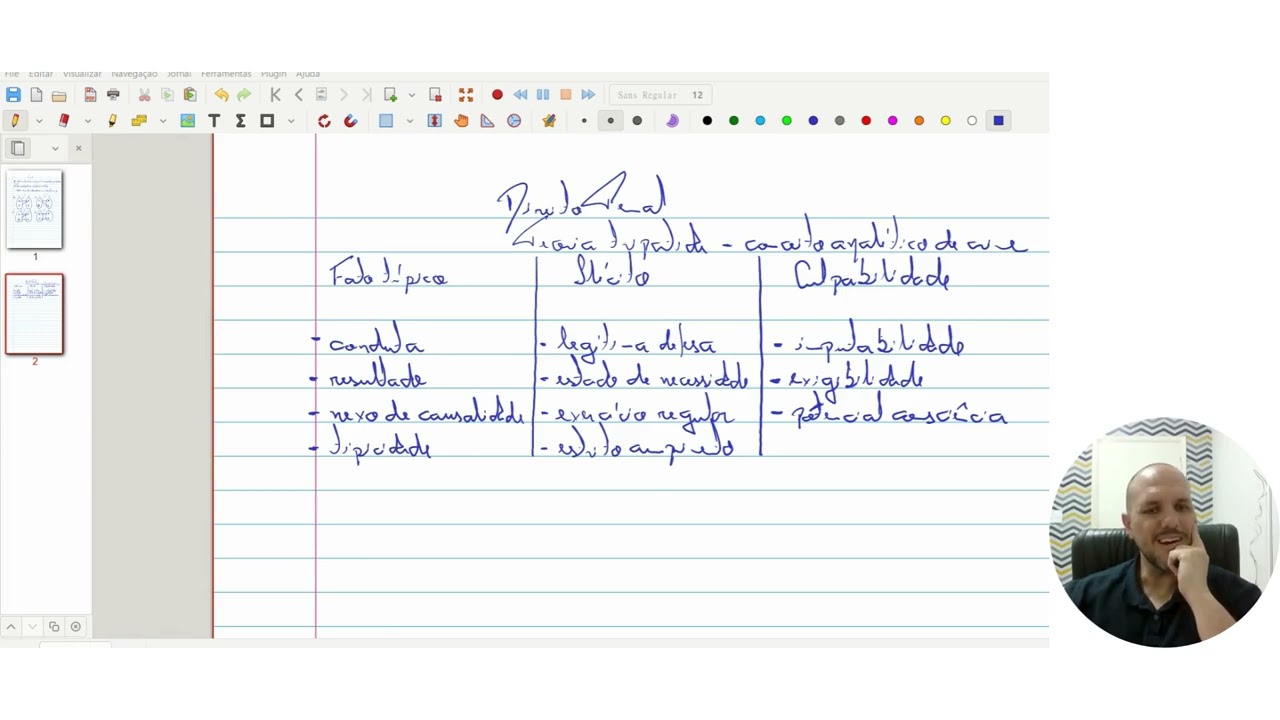 File Editar Visualizar Navegação Jornal Ferramentas Plugin Ajuda
Sans Regular 12
Direito Penal
Teoria tripartida - conceito analítico de crime
Fato típico Ilícito Culpabilidade
- conduta - legítima defesa - imputabilidade
- resultado - estado de necessidade - exigibilidade
- nexo de causalidade - exercício regular - potencial consciência
- tipicidade - estrito cumprimento
1
2